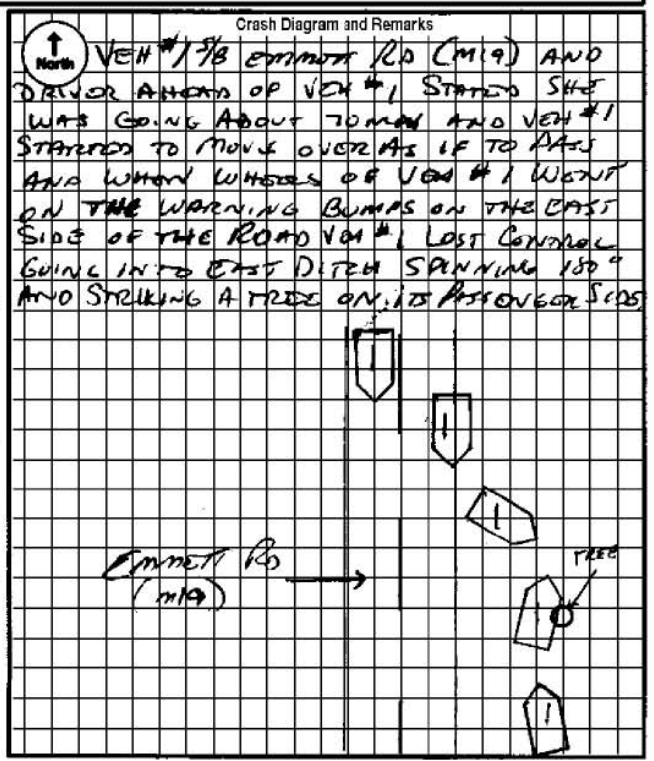 Crash Diagram and Remarks
North
VEH #1 S/B EMMETT RD (M19) AND
DRIVER AHEAD OF VEH #1 STATED SHE
WAS GOING ABOUT 70 MPH AND VEH #1
STARTED TO MOVE OVER AS IF TO PASS
AND WHEN WHEELS OF VEH #1 WENT
ON THE WARNING BUMPS ON THE EAST
SIDE OF THE ROAD VEH #1 LOST CONTROL
GOING INTO EAST DITCH SPINNING 180°
AND STRIKING A TREE ON ITS PASSENGER SIDE.
1
1
1
EMMETT RD
(M19)
TREE
1
1